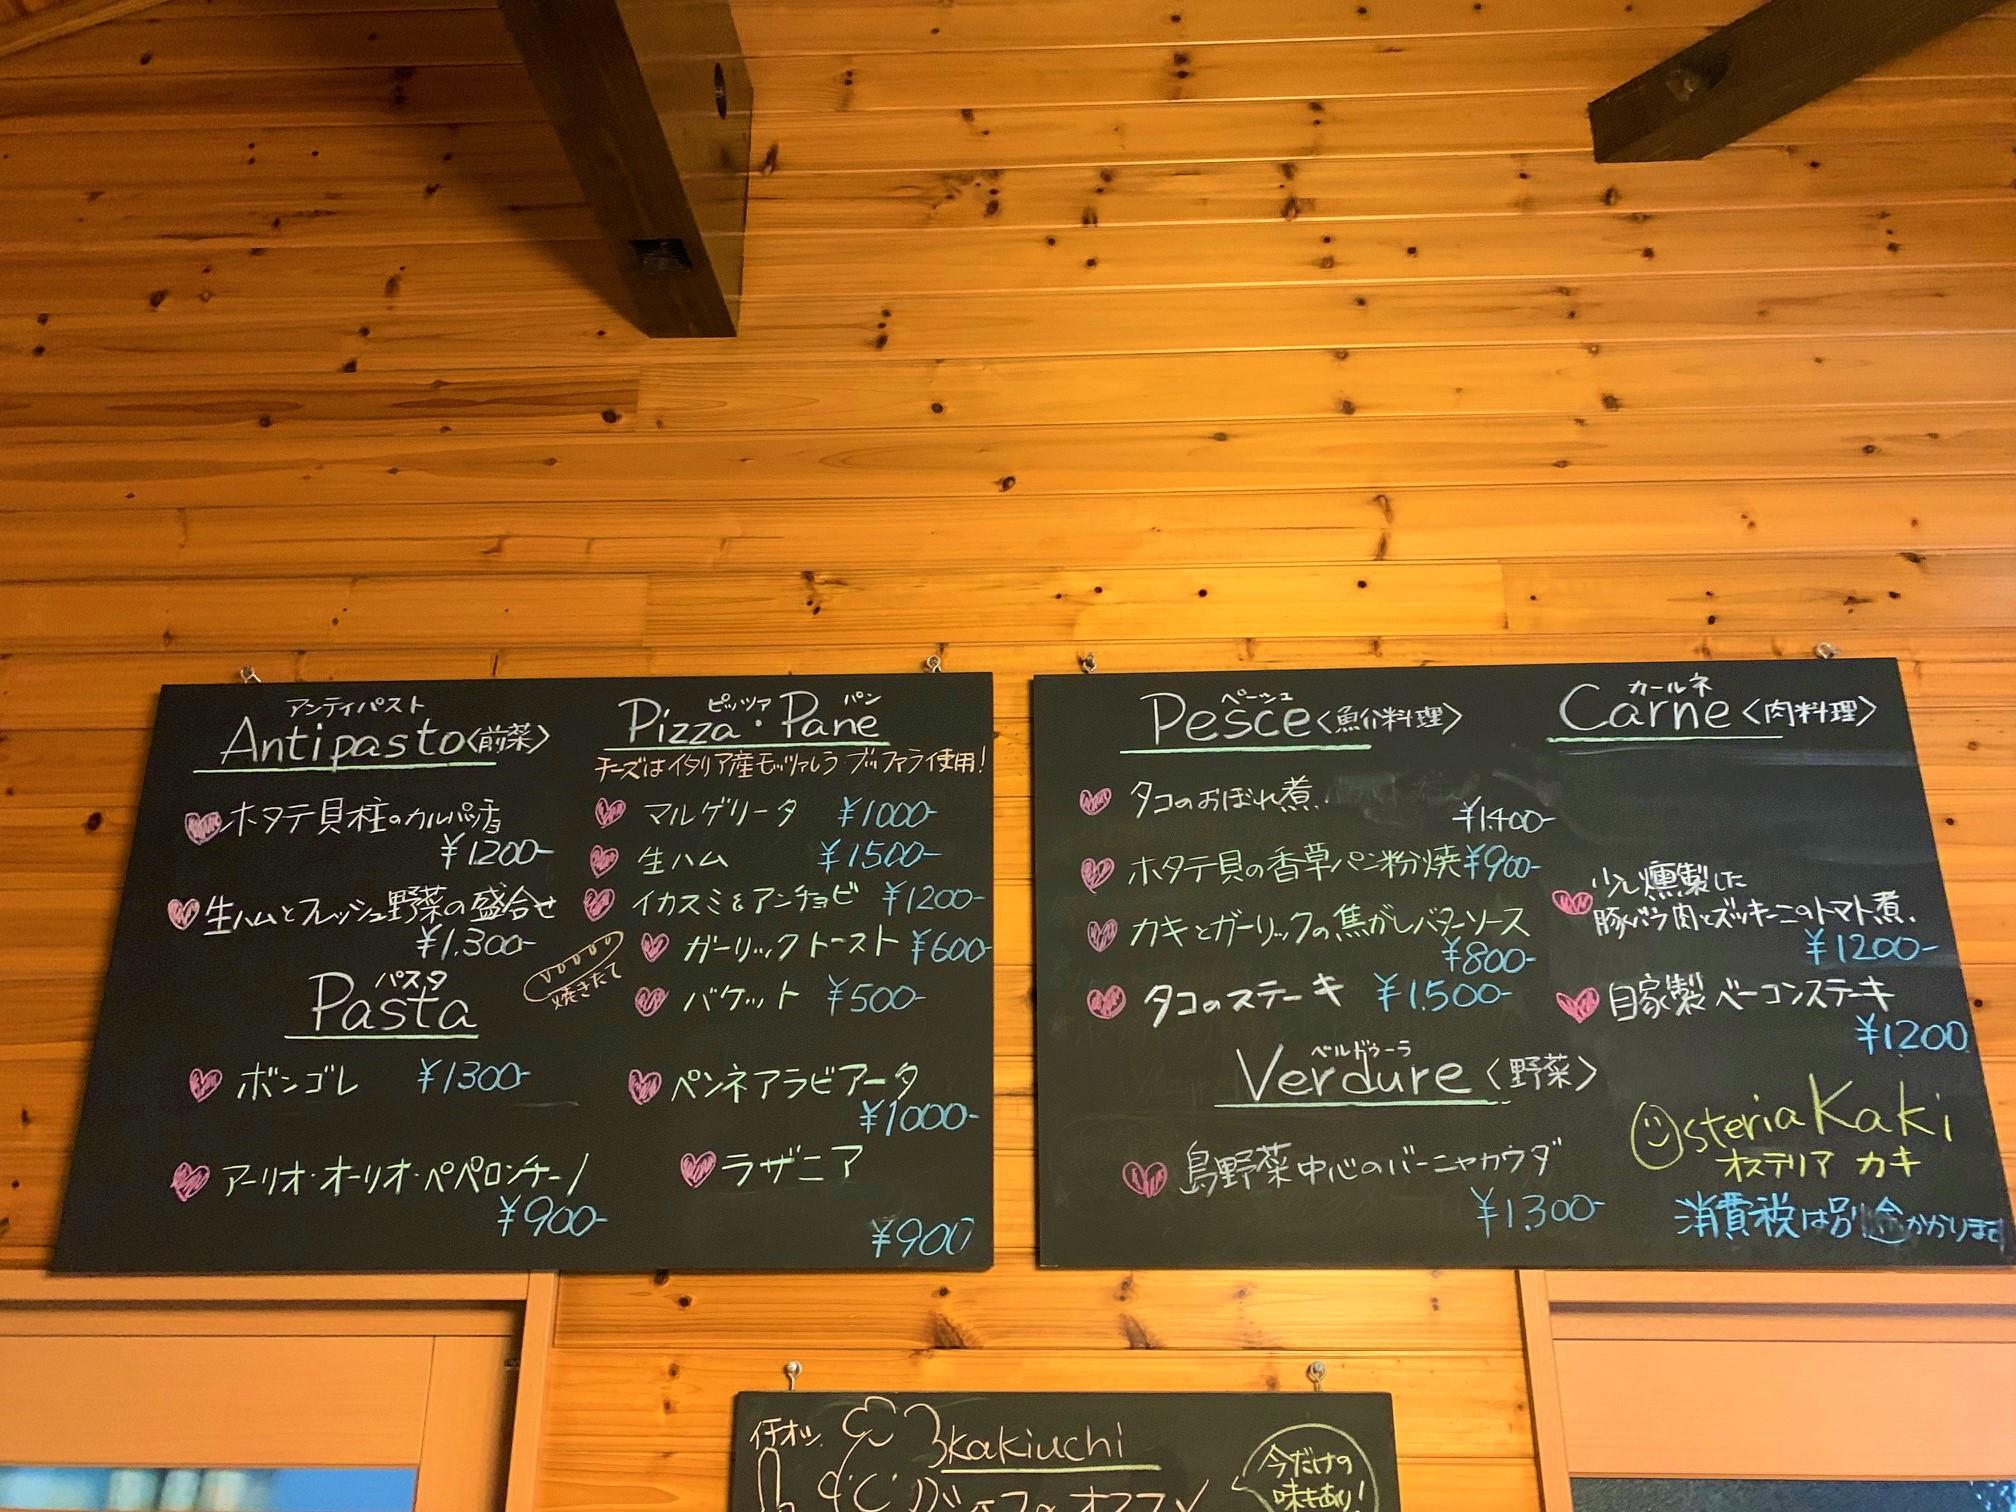 アンティパスト
Antipasto〈前菜〉
ホタテ貝柱のカルパッチョ
¥1200-
生ハムとフレッシュ野菜の盛合せ
¥1,300-
パスタ
Pasta
ボンゴレ ¥1300-
アーリオ・オーリオ・ペペロンチーノ
¥900-
ピッツァ パン
Pizza・Pane
チーズはイタリア産モッツァレラ・ブッファラ使用!
マルゲリータ ¥1000-
生ハム ¥1500-
イカスミ&アンチョビ ¥1200-
焼きたて
ガーリックトースト ¥600-
バケット ¥500-
ペンネアラビアータ
¥1000-
ラザニア
¥900
ペーシュ
Pesce〈魚介料理〉
タコのおぼれ煮
¥1,400-
ホタテ貝の香草パン粉焼 ¥900-
カキとガーリックの焦がしバターソース
¥800-
タコのステーキ ¥1,500-
ベルドゥーラ
Verdure〈野菜〉
島野菜中心のバーニャカウダ
¥1,300-
カールネ
Carne〈肉料理〉
少し燻製した
豚バラ肉とズッキーニのトマト煮.
¥1200-
自家製ベーコンステーキ
¥1200
Osteria Kaki
オステリア カキ
消費税は別途かかります
イチオシ
kakiuchi
今だけの
味もあり!